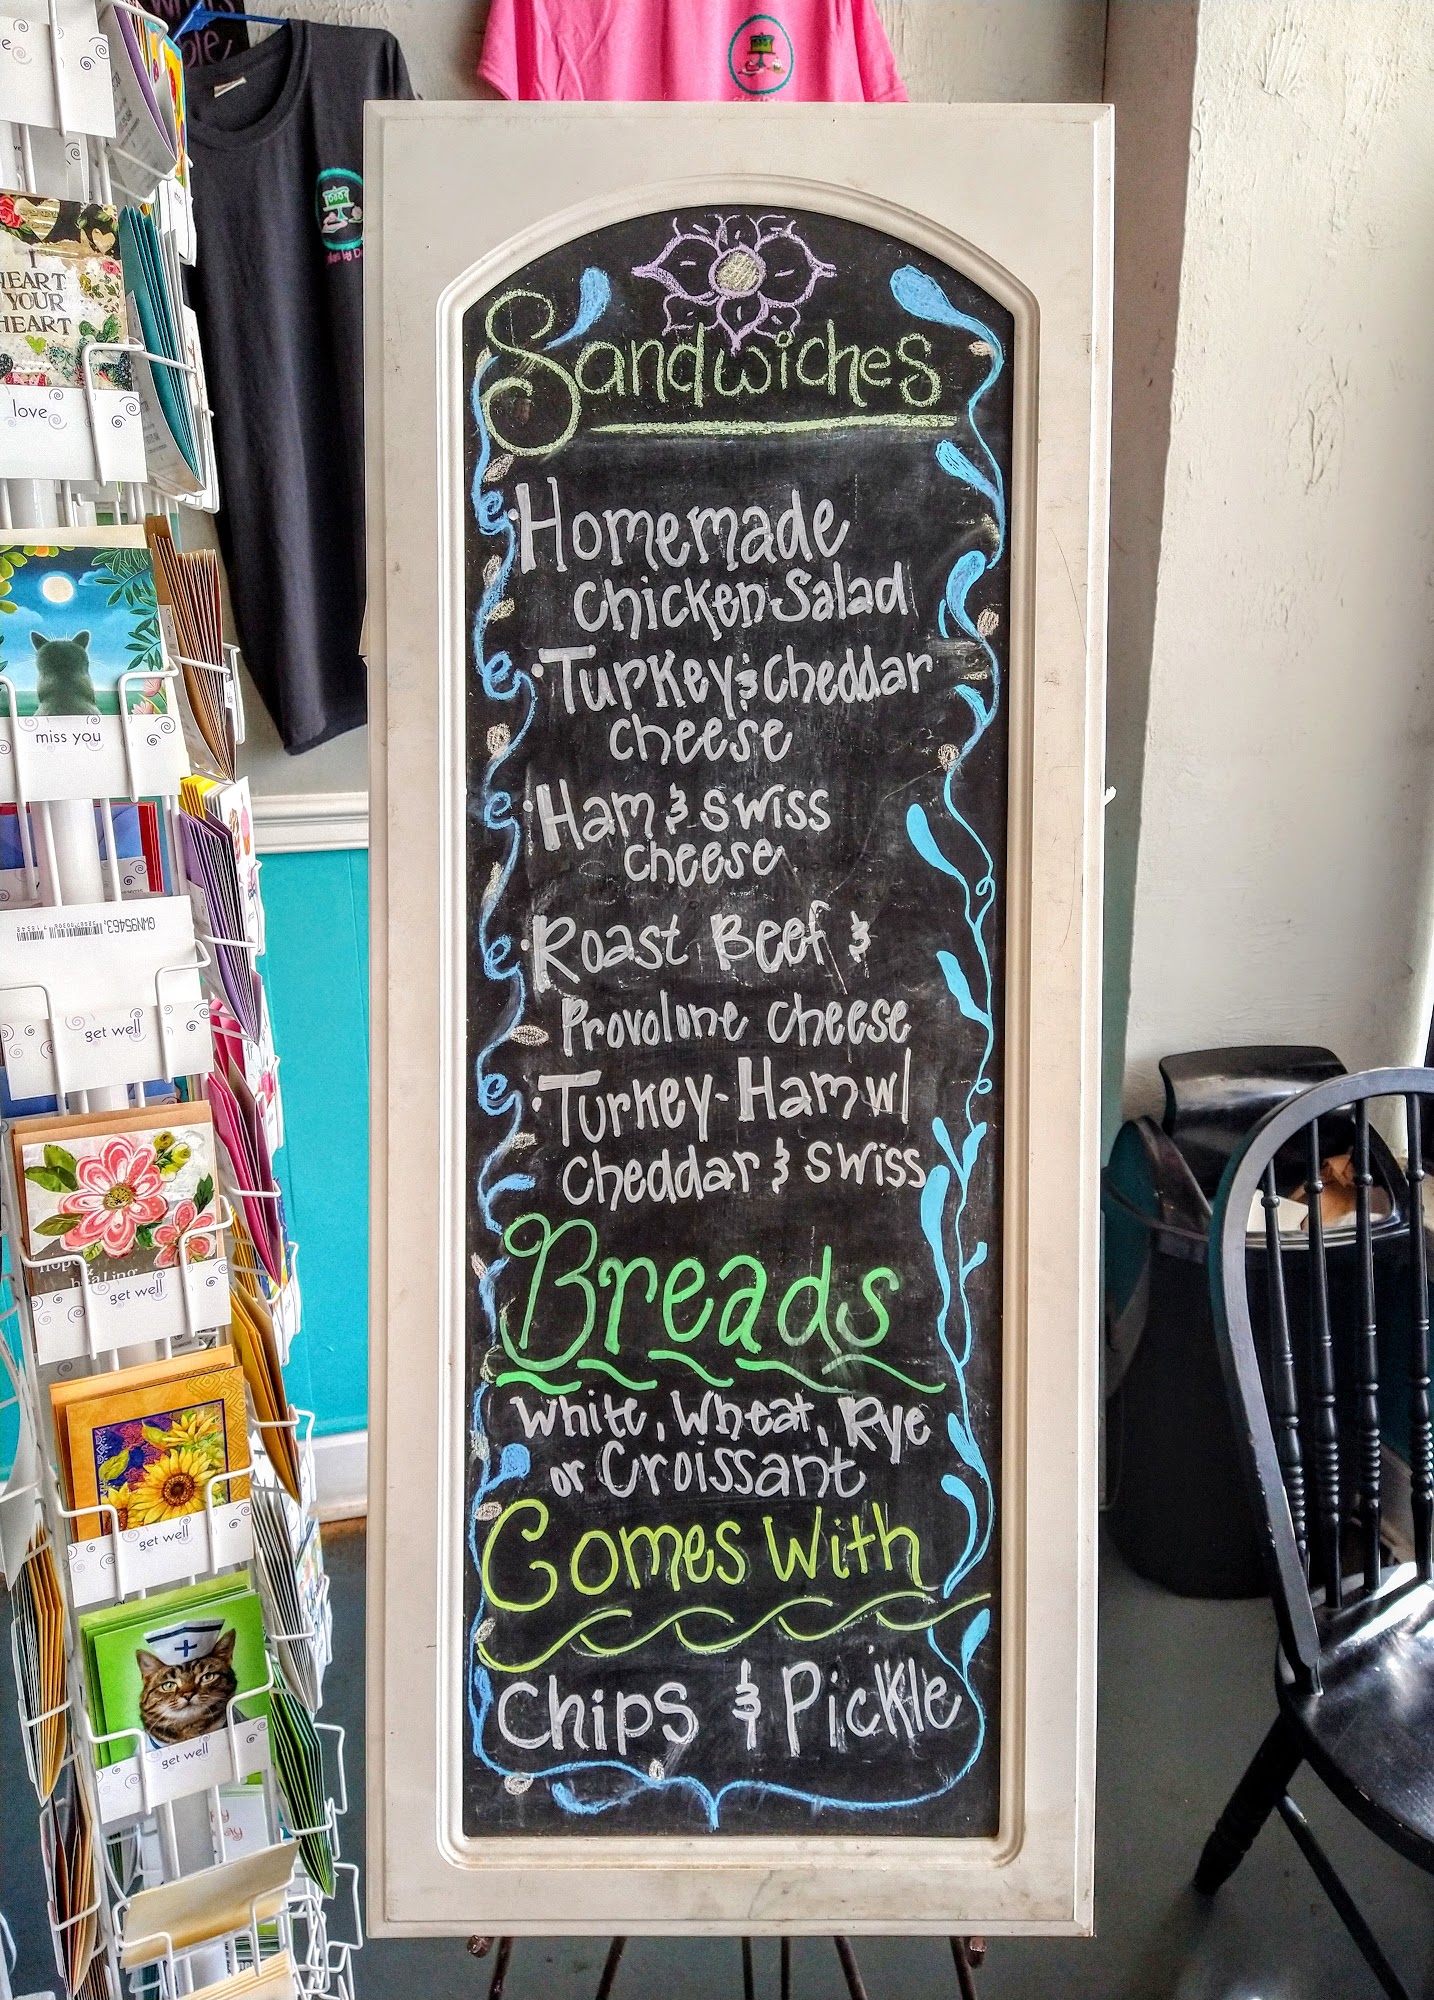 Sandwiches
• Homemade
Chicken Salad
• Turkey & Cheddar
cheese
• Ham & swiss
cheese
• Roast Beef &
Provolone cheese
• Turkey-Ham w/
Cheddar & swiss
Breads
White, Wheat, Rye
or Croissant
Comes With
Chips & Pickle
I
HEART
YOUR
HEART
love
miss you
GWN95463
get well
healing
get well
get well
get well